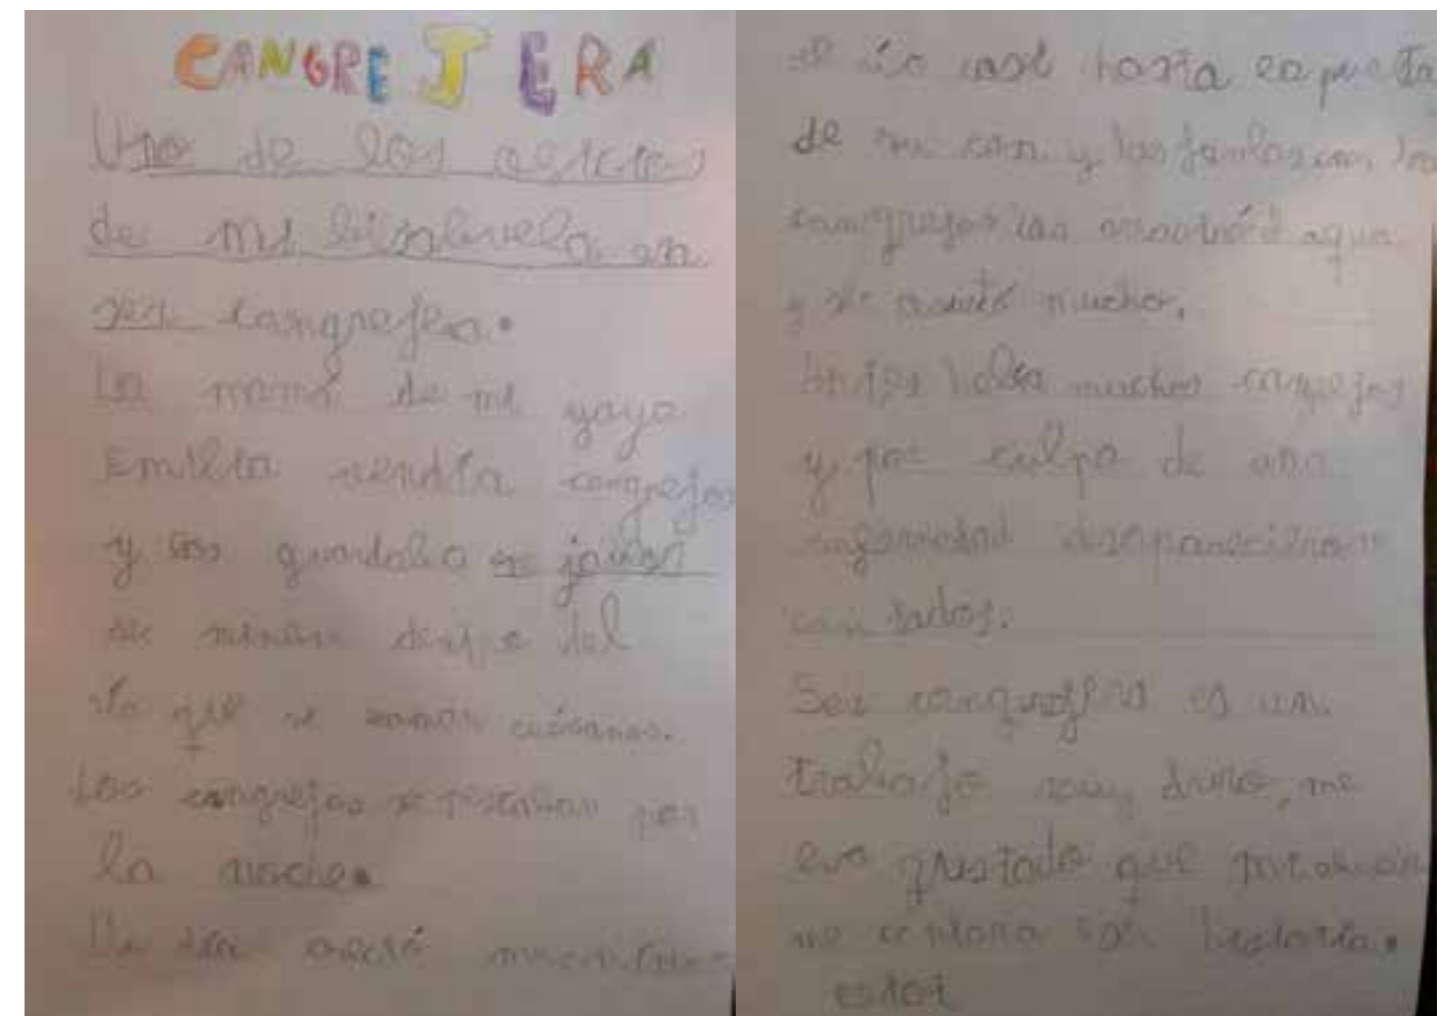 CANGREJERA
Uno de los oficios
de mi bisabuela era
ser cangrejera.
La mamá de mi yaya
Emilia vendía cangrejos
y los guardaba en jaulas
de mimbre dentro del
río que se llama
Los cangrejos se pescaban por
la noche.
Un día creció
el río casi hasta la puerta
de su casa y las jaulas con los
cangrejos las arrastró el agua
y se asustó mucho.
Antes había muchos cangrejos
y por culpa de una
enfermedad desaparecieron
casi todos.
Ser cangrejera es un
trabajo muy duro, me
ha gustado que mi
me contara esta historia.